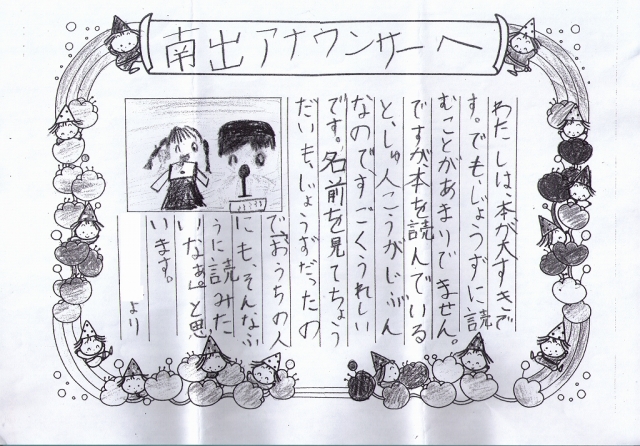 南出アナウンサーへ
わたしは、本が大すきで
す。でも、じょうずに読
むことがあまりでません。
ですが本を読んでいる
と、しゅ人こうがじぶん
なのですごくうれしい
です。名前を見てちょう
だいも、じょうずだったの
で、おうちの人
にも、そんなふ
うに読みた
いなぁ。と思
います。
より